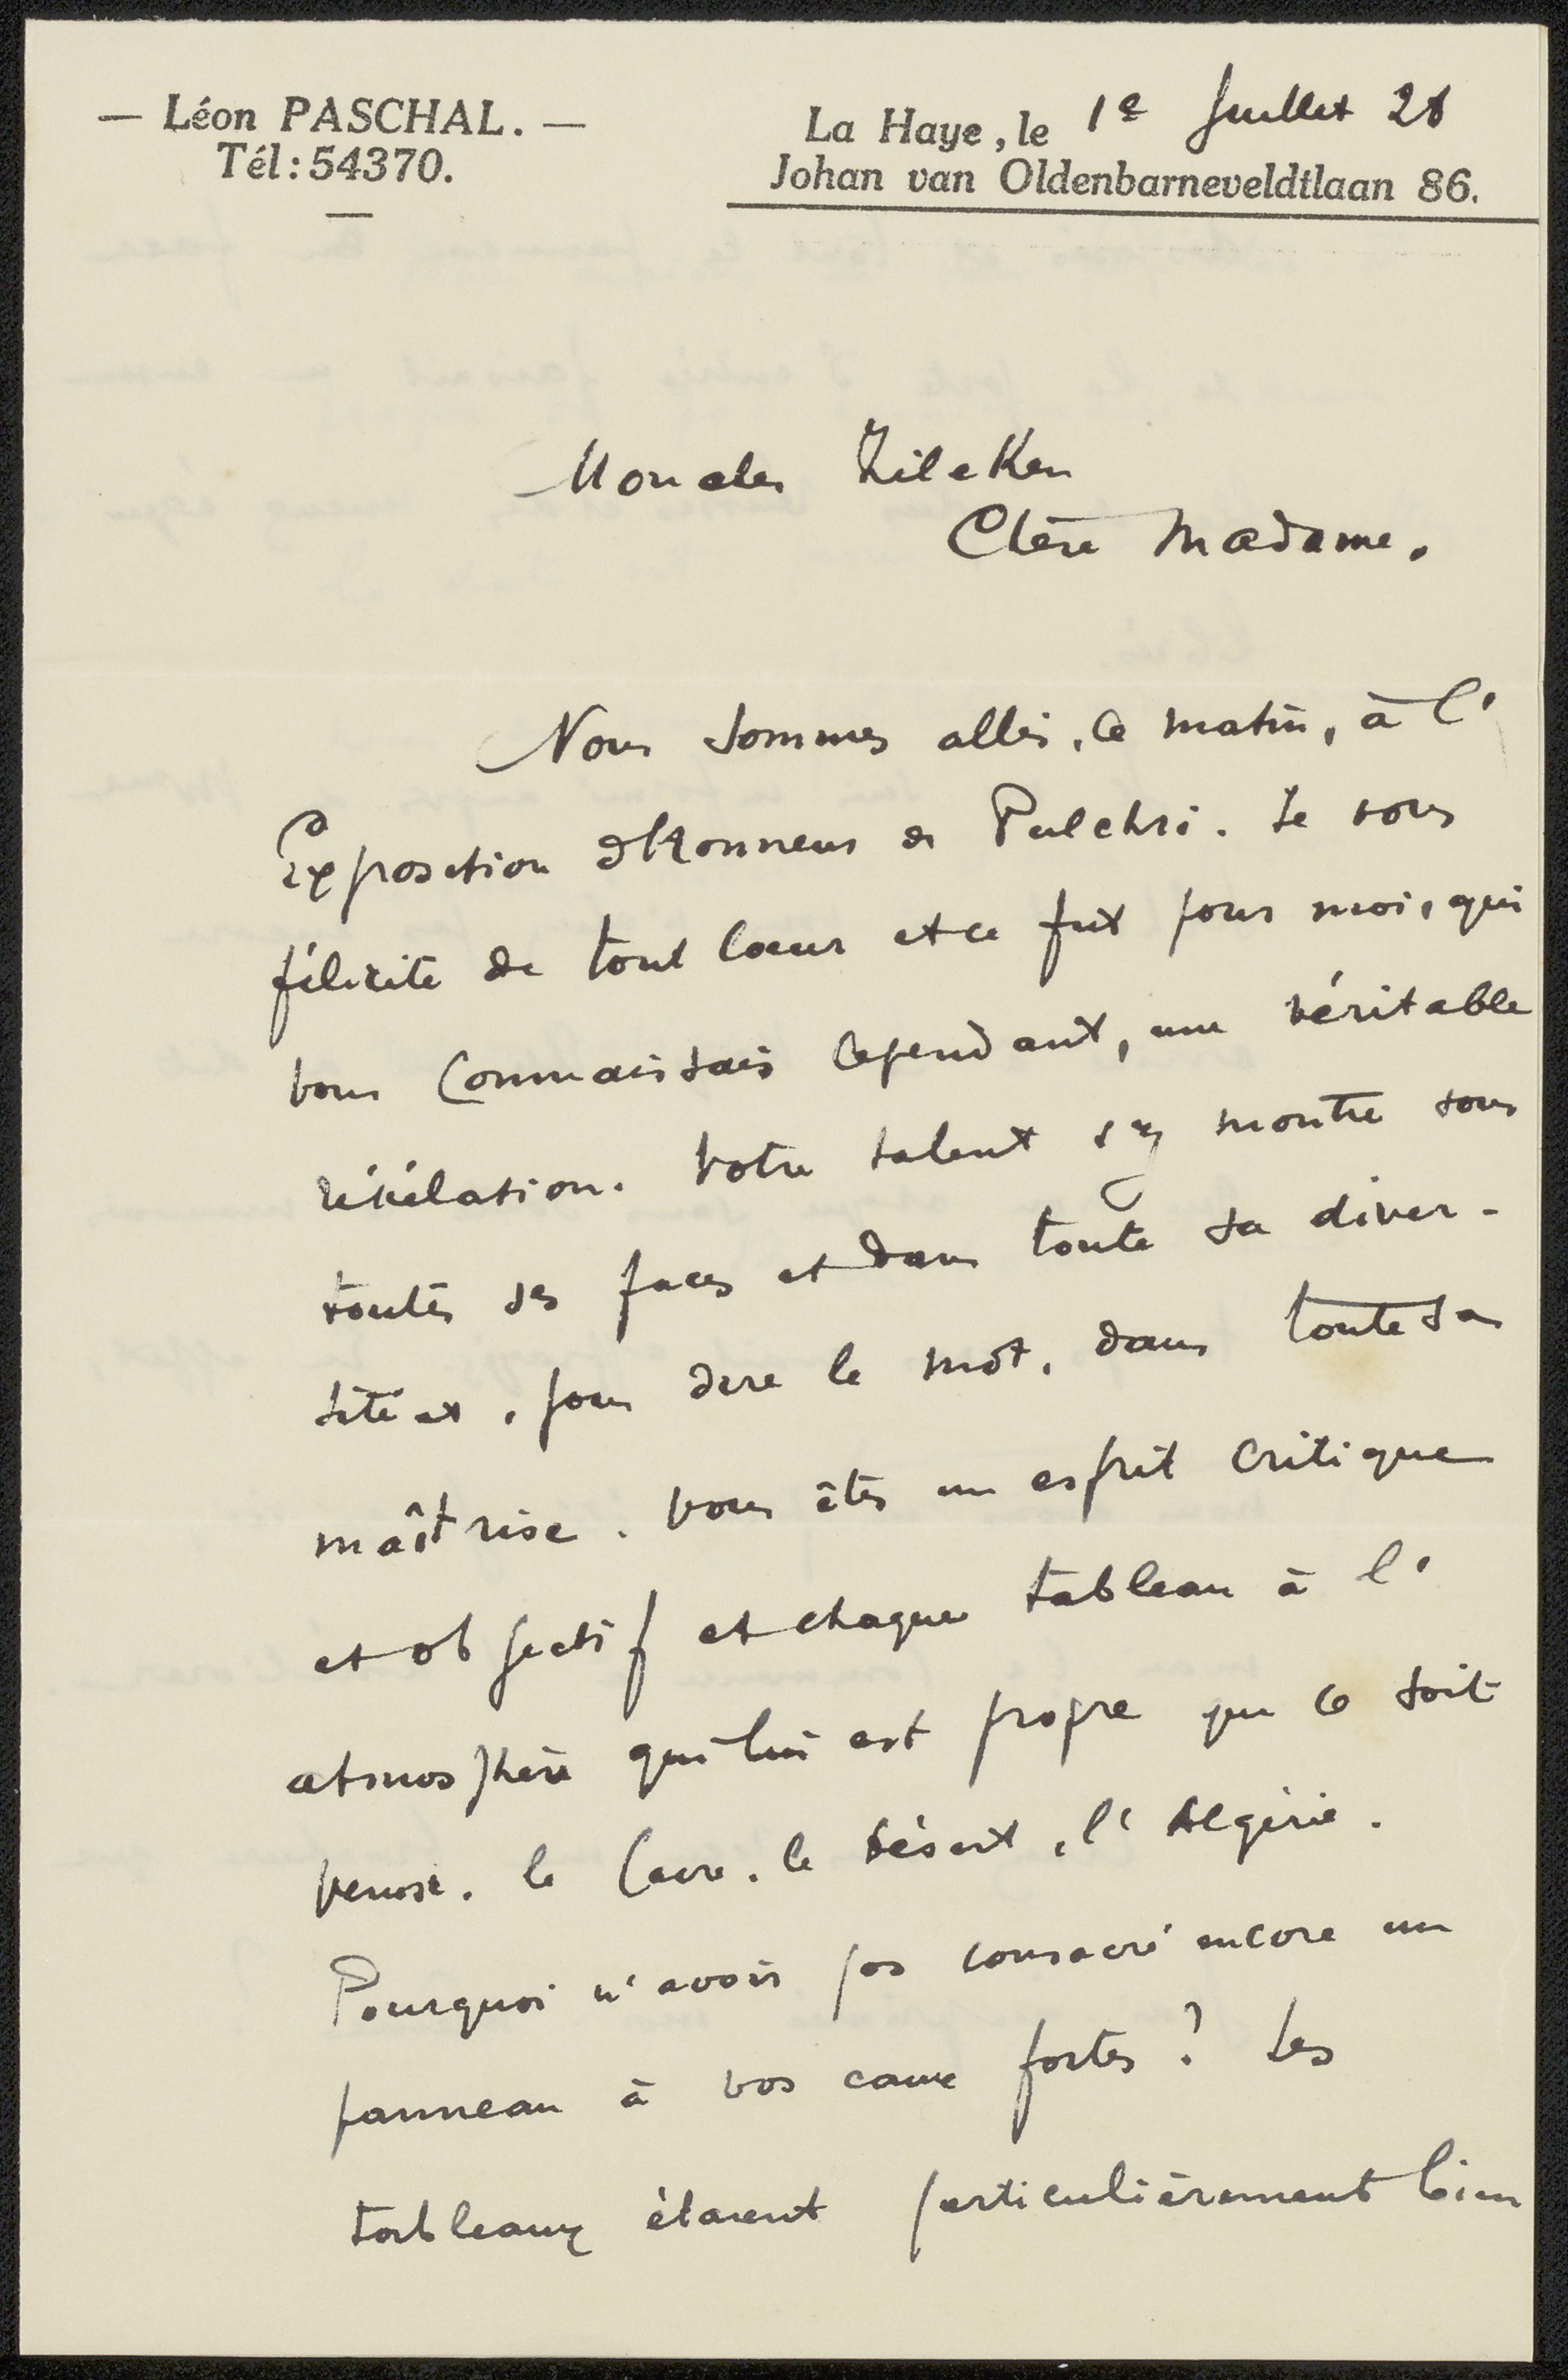 — Léon PASCHAL. —
Tél: 54370.
La Haye, le 1e Juillet 28
Johan van Oldenbarneveldtlaan 86.
Mon cher Zilcken
Chère Madame.
Nous sommes allés, ce matin, à l'
Exposition d'Honneur de Pulchri. Je vous
félicite de tout coeur et ce fut pour moi, qui
vous connaissais cependant, une véritable
révélation. Votre talent s'y montre sous
toutes ses faces et dans toute sa diver-
sité et, pour dire le mot, dans toute sa
maîtrise. Vous êtes un esprit critique
et objectif et chaque tableau à l'
atmosphère qui lui est propre que ce soit
Venise, le Caire, le désert, l'Algérie.
Pourquoi n'avoir pas consacré encore un
panneau à vos eaux fortes? Les
tableaux étaient particulièrement bien